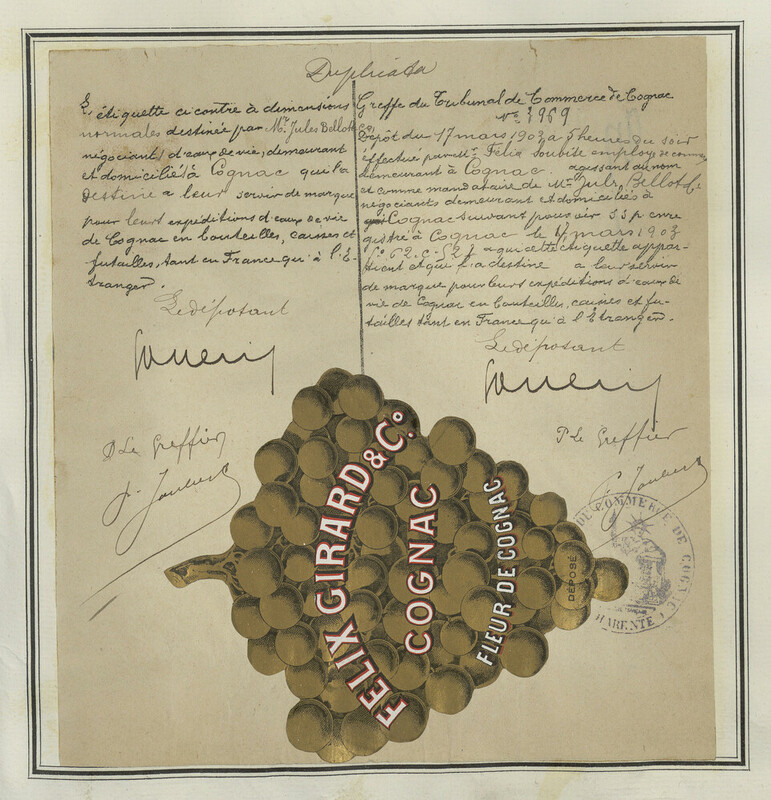 Duplicata
L'étiquette ci contre à dimensions
normales destinée par Mr. Jules Bellot &
négociants d'eaux de vie, demeurant
et domiciliés à Cognac qui l'a
destine a leur servir de marque
pour leurs expéditions d'eaux de vie
de Cognac en bouteilles, caisses et
futailles, tant en France qu'à l'É-
tranger.
Le déposant
P Le Greffier
Greffe du Tribunal de Commerce de Cognac
No 3969
Dépôt du 17 mars 1903 a 5 heures du soir
effectué par Mr. Félix Soubite employé de commerce
demeurant à Cognac. agissant au nom
et comme mandataire de Mr. Jules Bellot & Cie
négociants demeurant et domiciliés à
Cognac suivant pouvoir s s p enre
gistré à Cognac le 17 mars 1903
fo 62. c. 527 a qui cette étiquette appar-
tient et qui l'a destine a leur servir
de marque pour leurs expéditions d'eaux de
vie de Cognac en bouteilles, caisses et fu-
tailles tant en France qu'à l'Étranger.
Le déposant
P Le Greffier
FELIX GIRARD & Co.
COGNAC
FLEUR DE COGNAC
DÉPOSÉ
DE COMMERCE DE COGNAC
CHARENTE